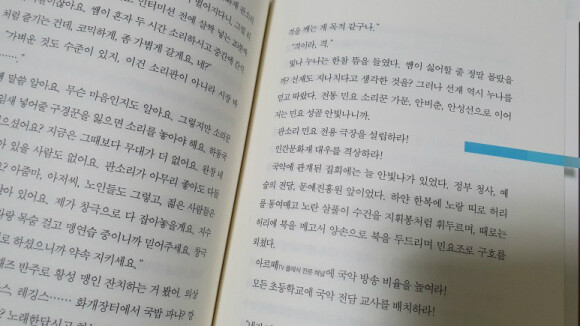 벌어지다니, 그
이잖아요. 쌤이 혼자 두 시간 소리하시고 중간에 잔
처럼 즐기는 건데, 코믹하게, 좀 가볍게 갈게요, 네?"
"가벼운 것도 수준이 있지, 이건 소리판이 아니라 시장 바
……."
말씀 알아요. 무슨 마음인지도 알아요. 그렇지만 소리꾼
임새 넣어줄 구경꾼을 잃으면 소리를 놓아야 해요. 하동국
으셨어요? 지금은 그때보다 무대가 더 없어요. 원통 내
아 있을 사람도 없어요. 판소리가 아무리 좋아도 다들
? 아줌마, 아저씨, 노인들도 그렇고, 젊은 사람들은
라고요. 제가 창극으로 다 잡아놓을게요. 지수
라랑 목숨 걸고 맹연습 중이니까 믿어주세요. 창극
로 하셨으니까 약속 지키세요."
재즈 반주로 황성 맹인 잔치하는 거 봤어. 의상
스, 레깅스…… 화개장터에서 국밥 파냐?
? 노래한답시고
격을 깨는 게 목적 같구나."
"겪이라, 격."
빛나 누나는 한참 뜸을 들였다. 쌤이 싫어할 줄 정말 몰랐을
까? 선재도 지나치다고 생각한 것을? 그러나 선재 역시 누나를
믿고 따랐다. 전통 민요 소리꾼 가문, 안비춘, 안성선으로 이어
지는 민요 성골 안빛나니까.
판소리 민요 전용 극장을 설립하라!
인간문화재 대우를 격상하라!
국악에 관계된 집회에는 늘 안빛나가 있었다. 정부 청사, 예
술의 전당, 문예진흥원 앞이었다. 하얀 한복에 노랑 띠로 허리
를 동여매고 노란 살풀이 수건을 지휘봉처럼 휘두르며, 때로는
허리에 북을 메고서 양손으로 북을 두드리며 민요조로 구호를
외쳤다.
아르떼TV 클래식 전문 채널에 국악 방송 비율을 높여라!
모든 초등학교에 국악 전담 교사를 배치하라!